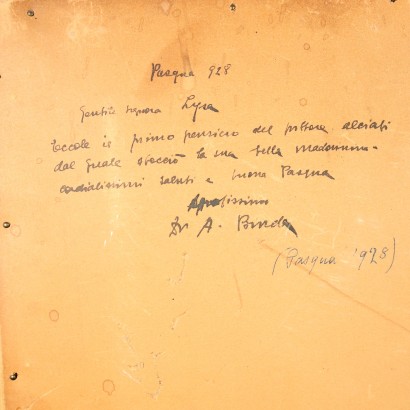 Pasqua 928
Gentile signora Lyra
Eccole il primo pensiero del pittore Alciati
dal quale la sua bella Madonnina
cordialissimi saluti e buona Pasqua
Dr A.
(Pasqua '928)